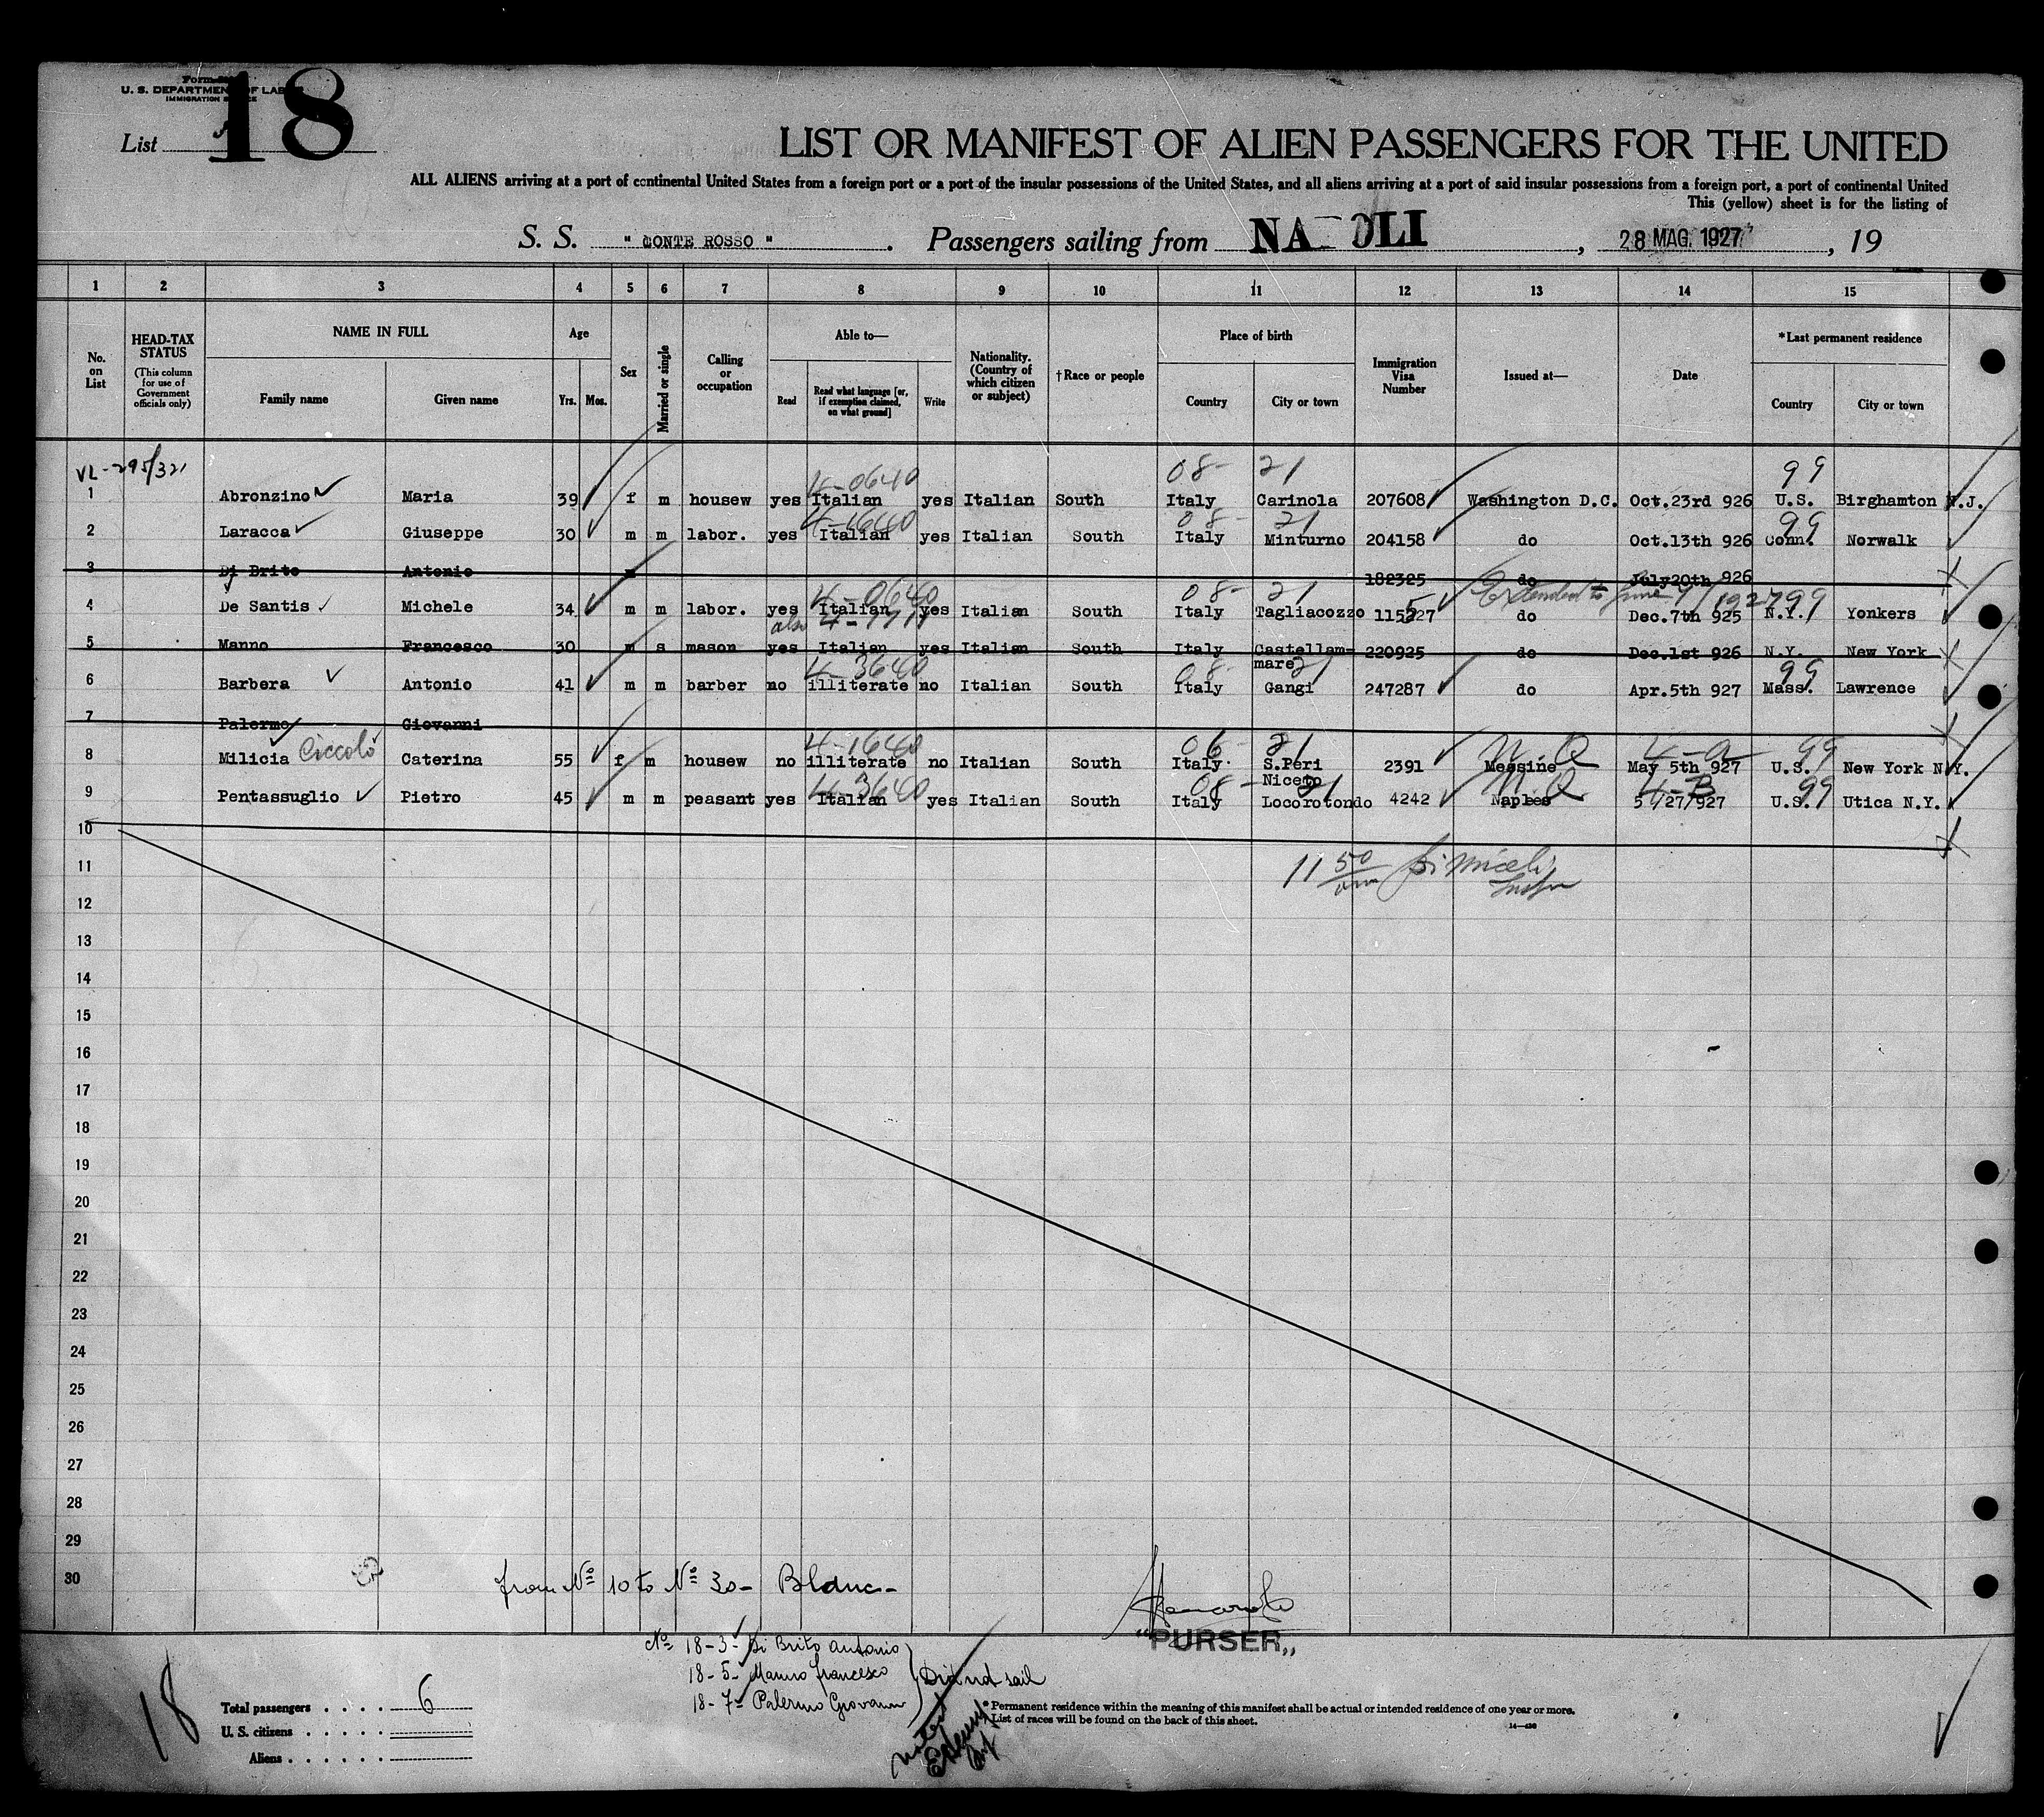 U. S. DEPARTMENT OF LABOR
IMMIGRATION SERVICE
List 18
LIST OR MANIFEST OF ALIEN PASSENGERS FOR THE UNITED
ALL ALIENS arriving at a port of continental United States from a foreign port or a port of the insular possessions of the United States, and all aliens arriving at a port of said insular possessions from a foreign port, a port of continental United
This (yellow) sheet is for the listing of
S. S. " CONTE ROSSO " . Passengers sailing from NA OLI , 28 MAG. 1927 , 19
1 2 3 4 5 6 7 8 9 10 11 12 13 14 15
No. on List
HEAD-TAX STATUS (This column for use of Government officials only)
NAME IN FULL Family name Given name
Age Yrs. Mos.
Sex
Married or single
Calling or occupation
Able to— Read Read what language [or, if exemption claimed, on what ground] Write
Nationality. (Country of which citizen or subject)
†Race or people
Place of birth Country City or town
Immigration Visa Number
Issued at—
Date
*Last permanent residence Country City or town
VL-295/321 4-0640 08- 21 99
1 Abronzino Maria 39 f m housew yes Italian yes Italian South Italy Carinola 207608 Washington D.C. Oct.23rd 926 U.S. Birghamton N.J.
4-1640 08- 21 99
2 Laracca Giuseppe 30 m m labor. yes Italian yes Italian South Italy Minturno 204158 do Oct.13th 926 Conn. Norwalk
3 Di Brito Antonio m 182325 do July20th 926
4-0640 08- 21 Extended to June 7/1927 99
4 De Santis Michele 34 m m labor. yes Italian yes Italian South Italy Tagliacozzo 115527 do Dec.7th 925 N.Y. Yonkers
also
5 Manno Francesco 30 m s mason yes Italian yes Italian South Italy Castellam-mare 220925 do Dec.1st 926 N.Y. New York
4-3640 08- 21 99
6 Barbera Antonio 41 m m barber no illiterate no Italian South Italy Gangi 247287 do Apr.5th 927 Mass. Lawrence
7 Palermo Giovanni
4-1640 06- 21 N.Q 4-a 99
8 Milicia Ciccolo Caterina 55 f m housew no illiterate no Italian South Italy S.Peri Niceto 2391 Messine May 5th 927 U.S. New York N.Y.
4-3640 08- 21 N.Q. 4-B 99
9 Pentassuglio Pietro 45 m m peasant yes Italian yes Italian South Italy Locorotondo 4242 Naples 5/27/927 U.S. Utica N.Y.
10
11 11 50
12
13
14
15
16
17
18
19
20
21
22
23
24
25
26
27
28
29
30
from No 10 to No 30- Blanc-
"PURSER"
No 18-3- Di Brito Antonio
18-5- Manno Francesco
18-7- Palermo Giovanni
Did not sail
18
Total passengers . . . . 6
U. S. citizens . . . . .
Aliens . . . . . .
* Permanent residence within the meaning of this manifest shall be actual or intended residence of one year or more.
† List of races will be found on the back of this sheet.
14—430